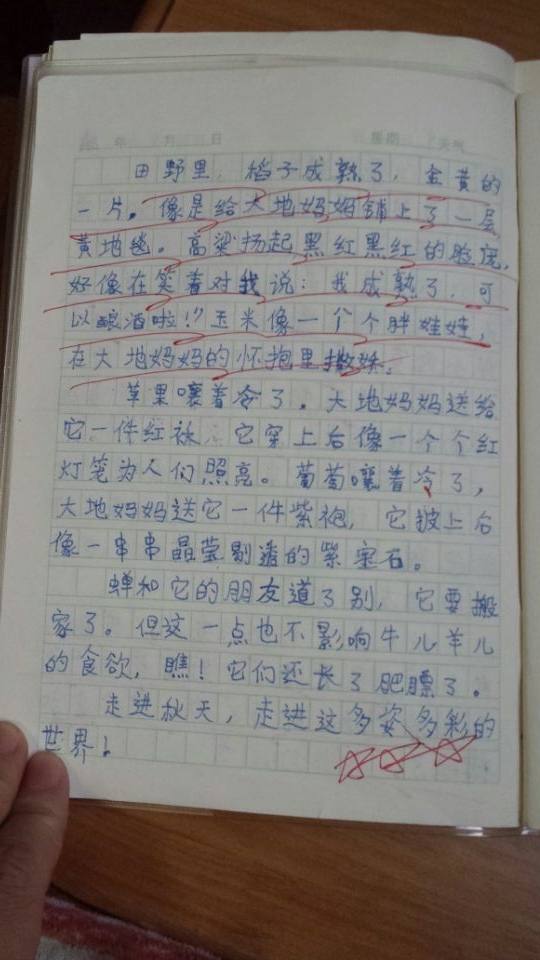 年 月 日 星期 天气
田野里，稻子成熟了，金黄的
一片。像是给大地妈妈铺上了一层
黄地毯。高粱扬起黑红黑红的脸庞，
好像在笑着对我说：我成熟了，可
以酿酒啦！”玉米像一个个胖娃娃，
在大地妈妈的怀抱里撒娇。
苹果嚷着冷了。大地妈妈送给
它一件红袄，它穿上后像一个个红
灯笼为人们照亮。葡萄嚷着冷了，
大地妈妈送它一件紫袍，它披上后
像一串串晶莹剔透的紫宝石。
蝉和它的朋友道了别，它要搬
家了。但这一点也不影响牛儿羊儿
的食欲，瞧！它们还长了肥膘了。
走进秋天，走进这多姿多彩的
世界！